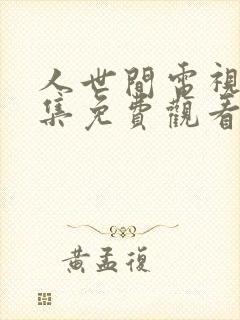 人世間電視
集免費觀看
黃孟復